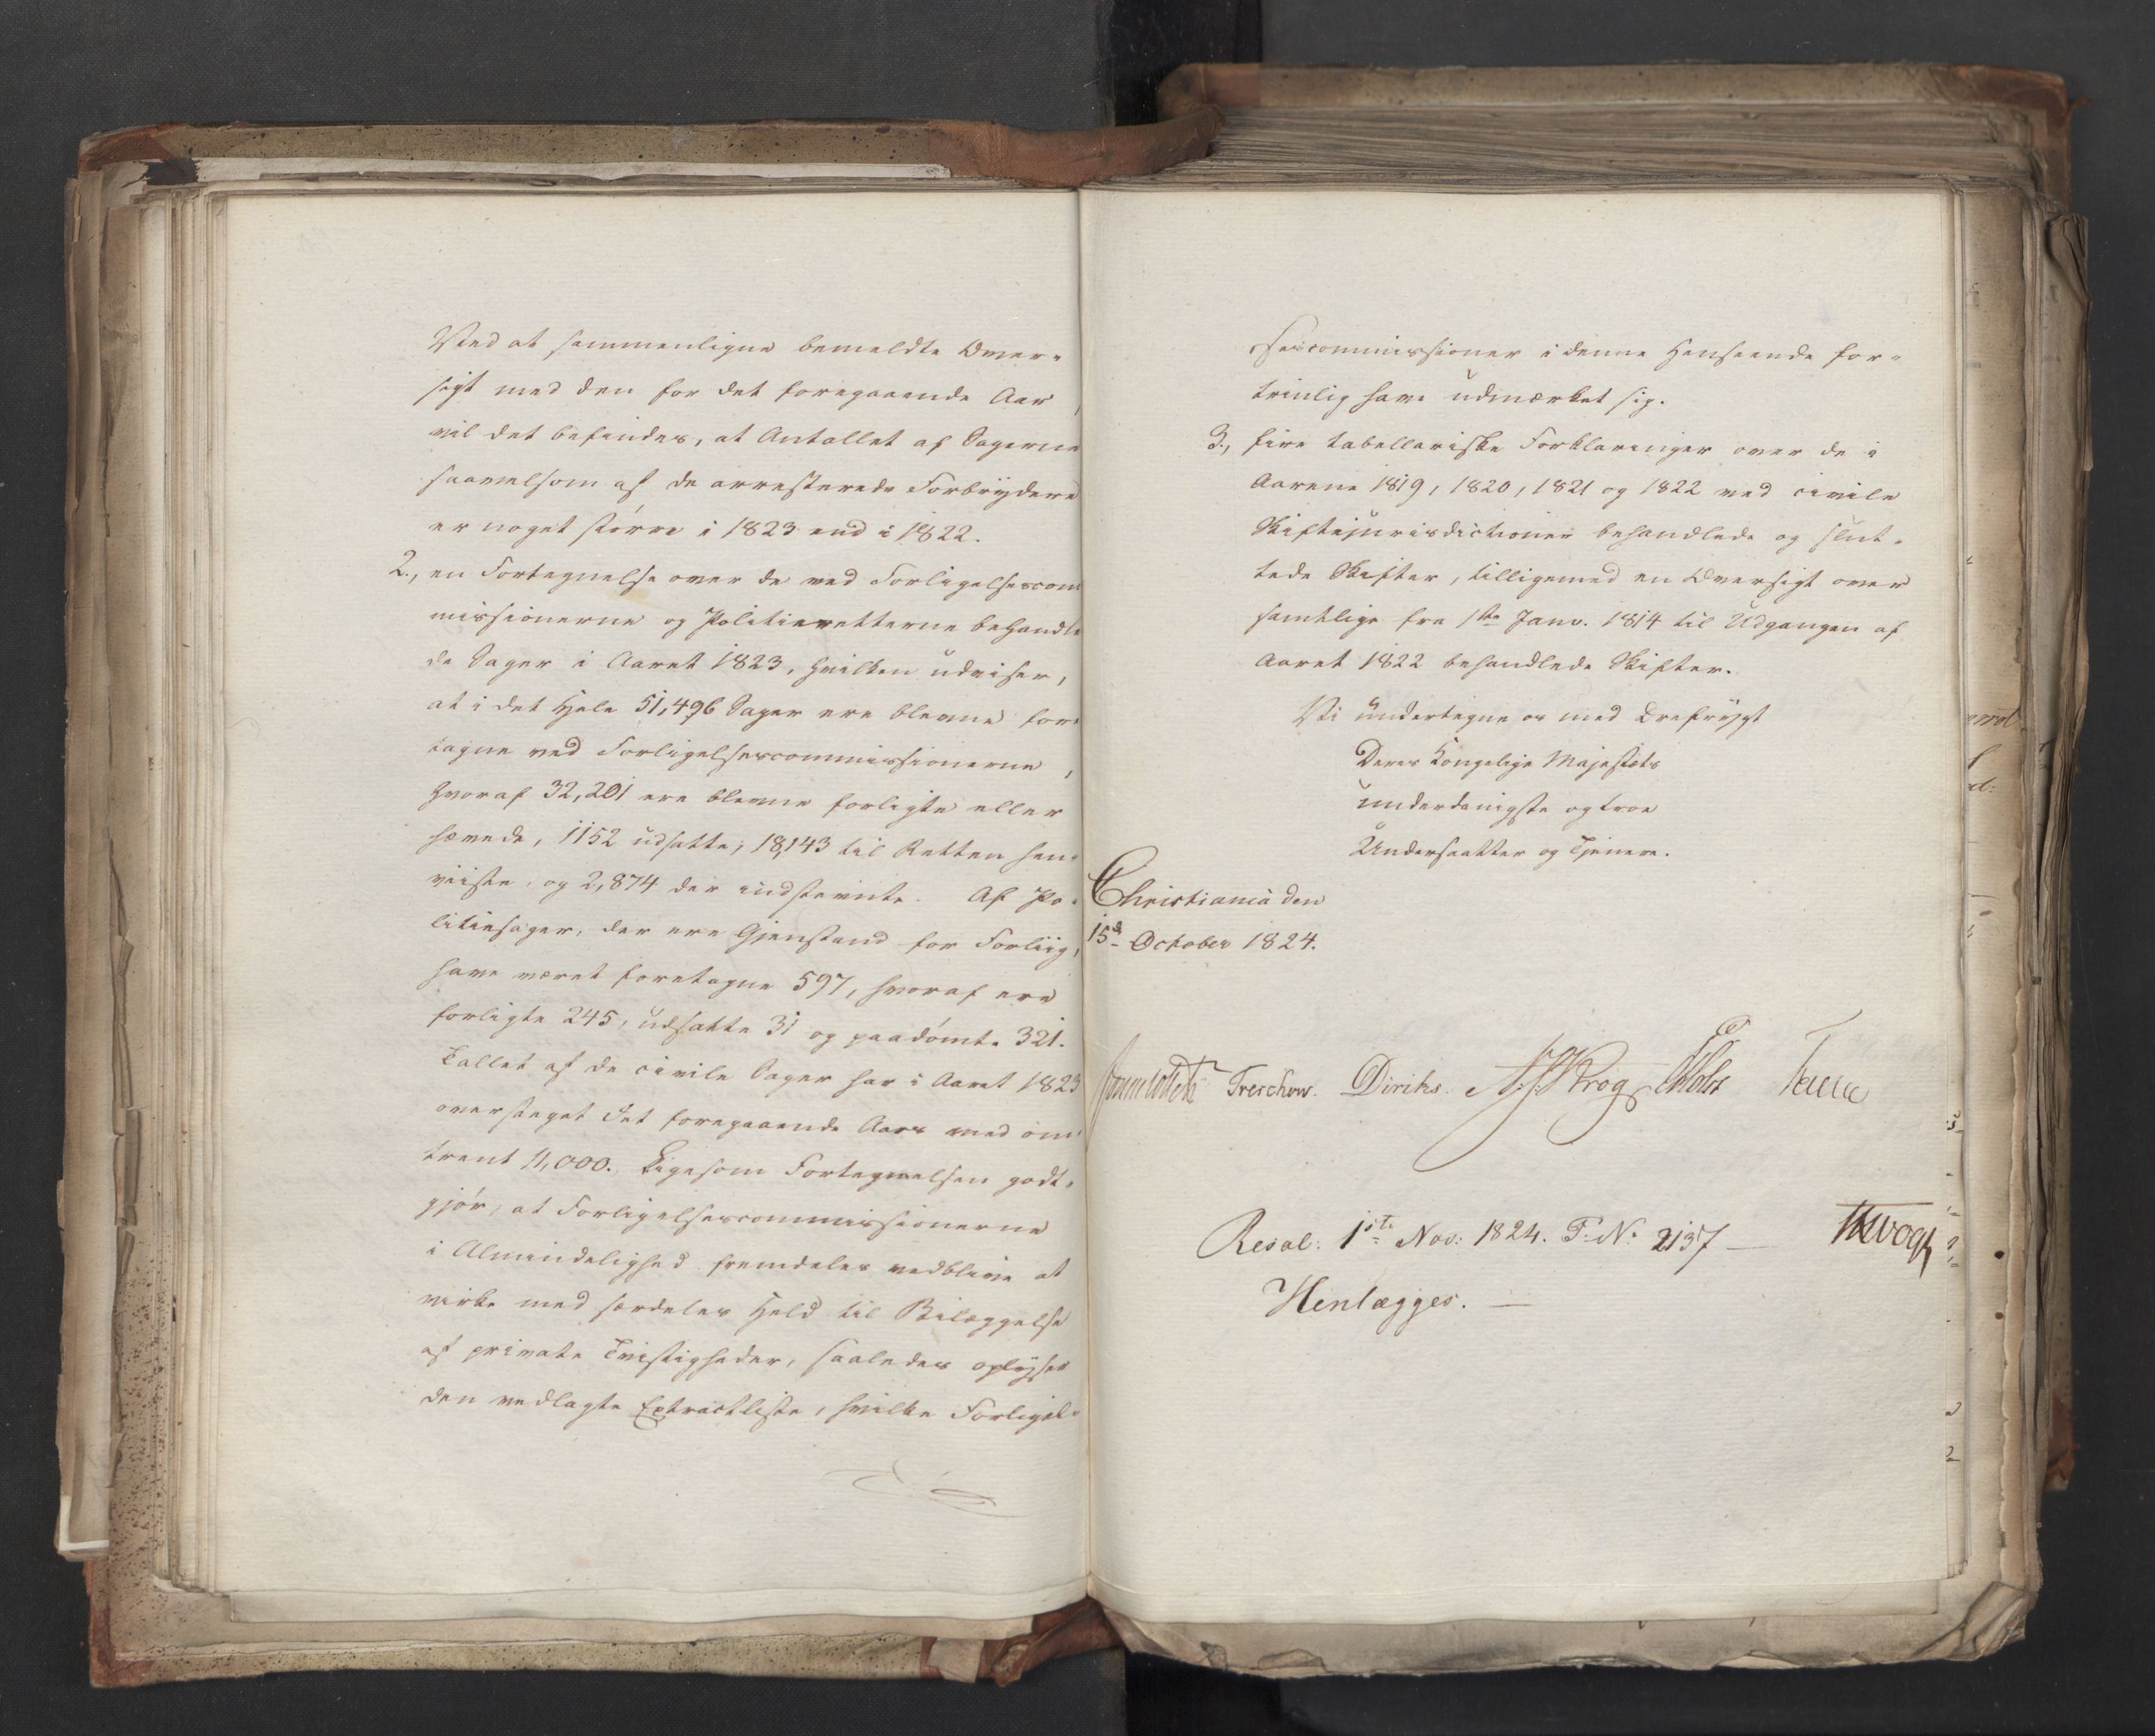 Ved at sammenligne bemeldte Over-
sigt med den for det foregaaende Aar,
vil det befindes, at Antallet af Sagerne
saavelsom af de arresterede Forbrydere
er noget større i 1823 end i 1822.
2., en Fortegnelse over de ved Forligelsescom
missionerne og Politieretterne behandle
de Sager i Aaret 1823, hvilken udviser,
at i det Hele 51,496 Sager ere blevne fore
tagne ved Forligelsescommissionerne,
hvoraf 32,201 ere blevne forligte eller
hævede, 1152 udsatte, 18,143 til Retten hen-
viiste, og 2,874 der indstevnte. Af Po-
litiesager, der ere Gjenstand for Forliig,
have været foretagne 597, hvoraf ere
forligte 245, udsatte 31 og paadømte 321.
Tallet af de civile Sager har i Aaret 1823
oversteget det foregaaende Aars med om
trent 11,000. Ligesom Fortegnelsen godt-
gjør, at Forligelsescommissionerne
i Almindelighed fremdeles vedblive at
virke med særdeles Held til Bilæggelse
af private Tvistigheder, saaledes oplyser
den vedlagte Extractliste, hvilke Forligel-
sescommissioner i denne Henseende for-
trinlig have udmærket sig.
3., fire tabellariske Forklaringer over de i
Aarene 1819, 1820, 1821 og 1822 ved civile
Skiftejurisdictioner behandlede og slut-
tede Skifter, tilligemed en Oversigt over
samtlige fra 1ste Janv. 1814 til Udgangen af
Aaret 1822 behandlede Skifter.
Vi undertegne os med Ærefrygt
Deres Kongelige Majestæts
underdanigste og troe
Undersaatter og Tjenere.
Christiania den
15d October 1824.
Sommerhielm Treschow. Diriks. J. Krog Holst Fasting
Resol: 1ste Nov: 1824. F. No 2137 — Vogt
Henlægges. —